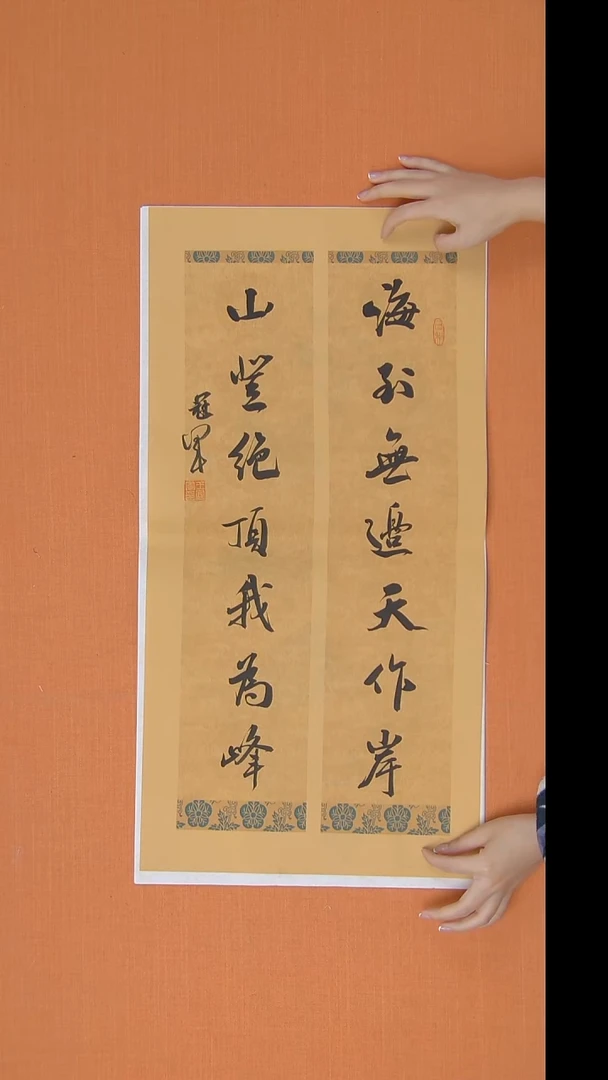 海到無邊天作岸
山登絶頂我為峰